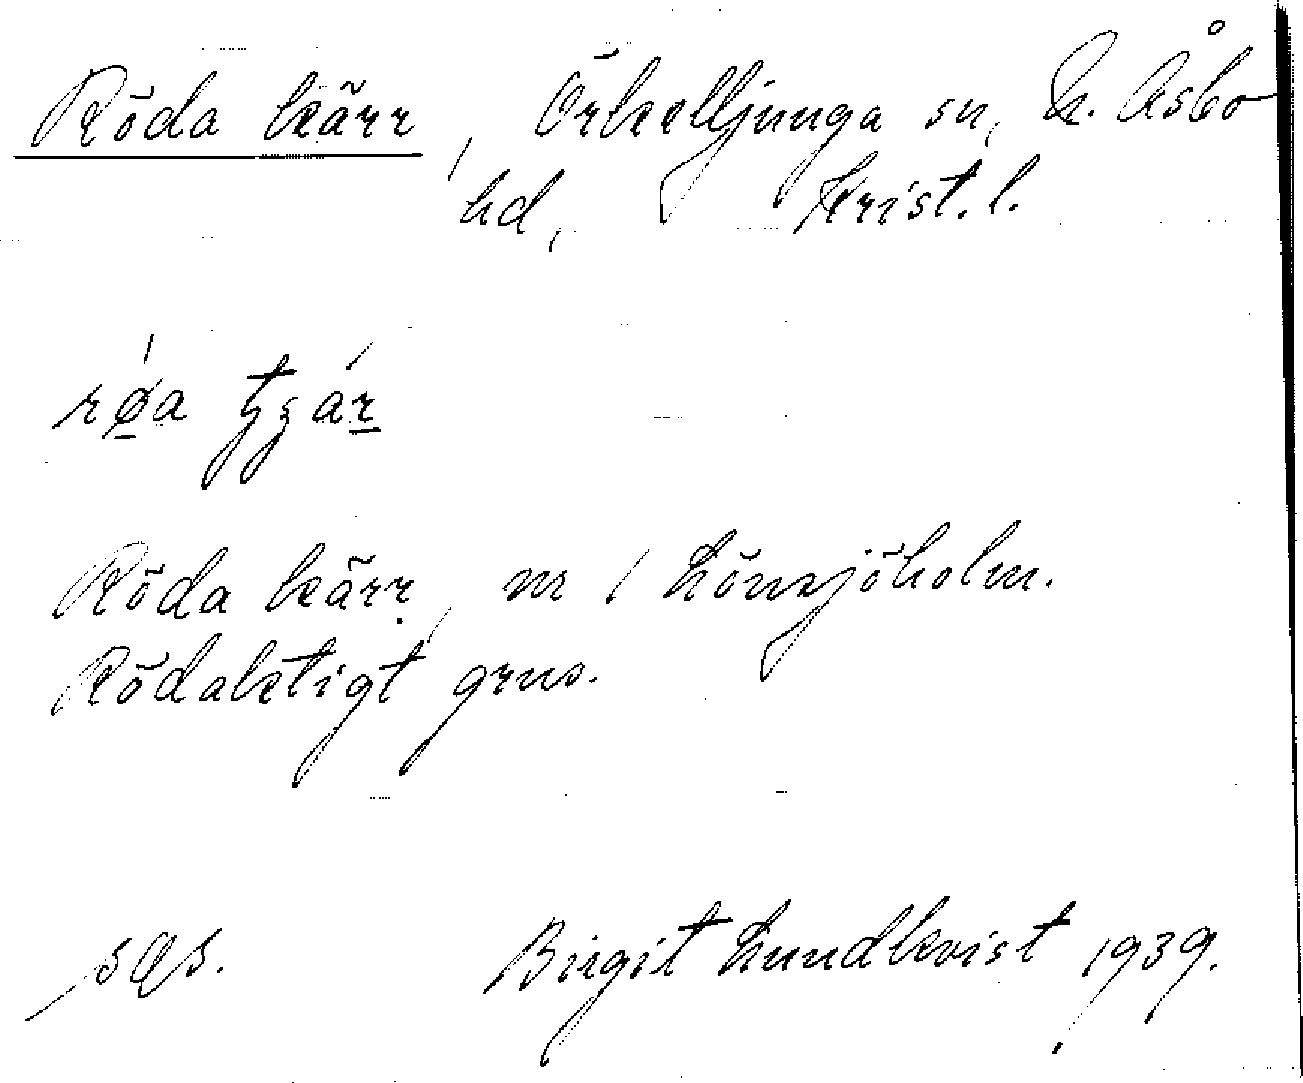 Röda kärr, Örkelljunga sn, N. Åsbo
hd, Krist. l.
Röda kärr, nr 1 Lönsjöholm.
Rödaktigt grus.
sqs. Birgit Lundkvist 1939.